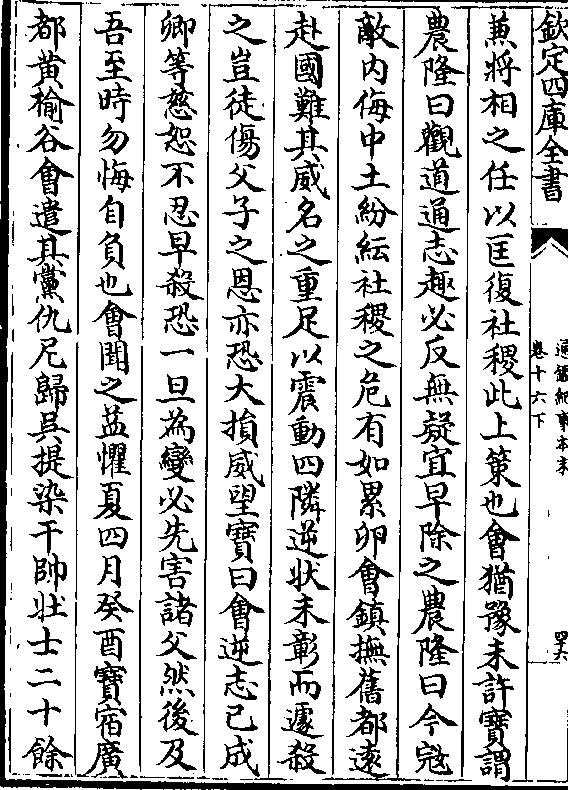 欽定四庫全書
通鑑紀事本末
卷十六下
四六
兼將相之任以匡復社稷此上策也會猶豫未許寶謂
農隆曰觀道通志趣必反無疑宜早除之農隆曰今冦
敵内侮中土紛紜社稷之危有如累卵會鎮撫舊都遠
赴國難其威名之重足以震動四隣逆状未彰而遽殺
之豈徒傷父子之恩亦恐大損威望寶曰會逆志已成
卿等慈恕不忍早殺恐一旦為變必先害諸父然後及
吾至時勿悔自負也會聞之益懼夏四月癸酉寶宿廣
都黄榆谷會遣其黨仇尼歸吳提染干帥壮士二十餘